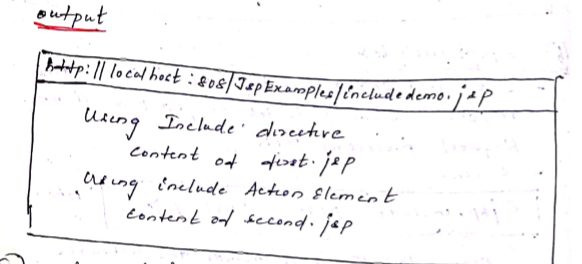 output
http://localhost:808/JspExamples/includedemo.jsp
Using Include directive
content of first.jsp
Using include Action Element
content of second.jsp